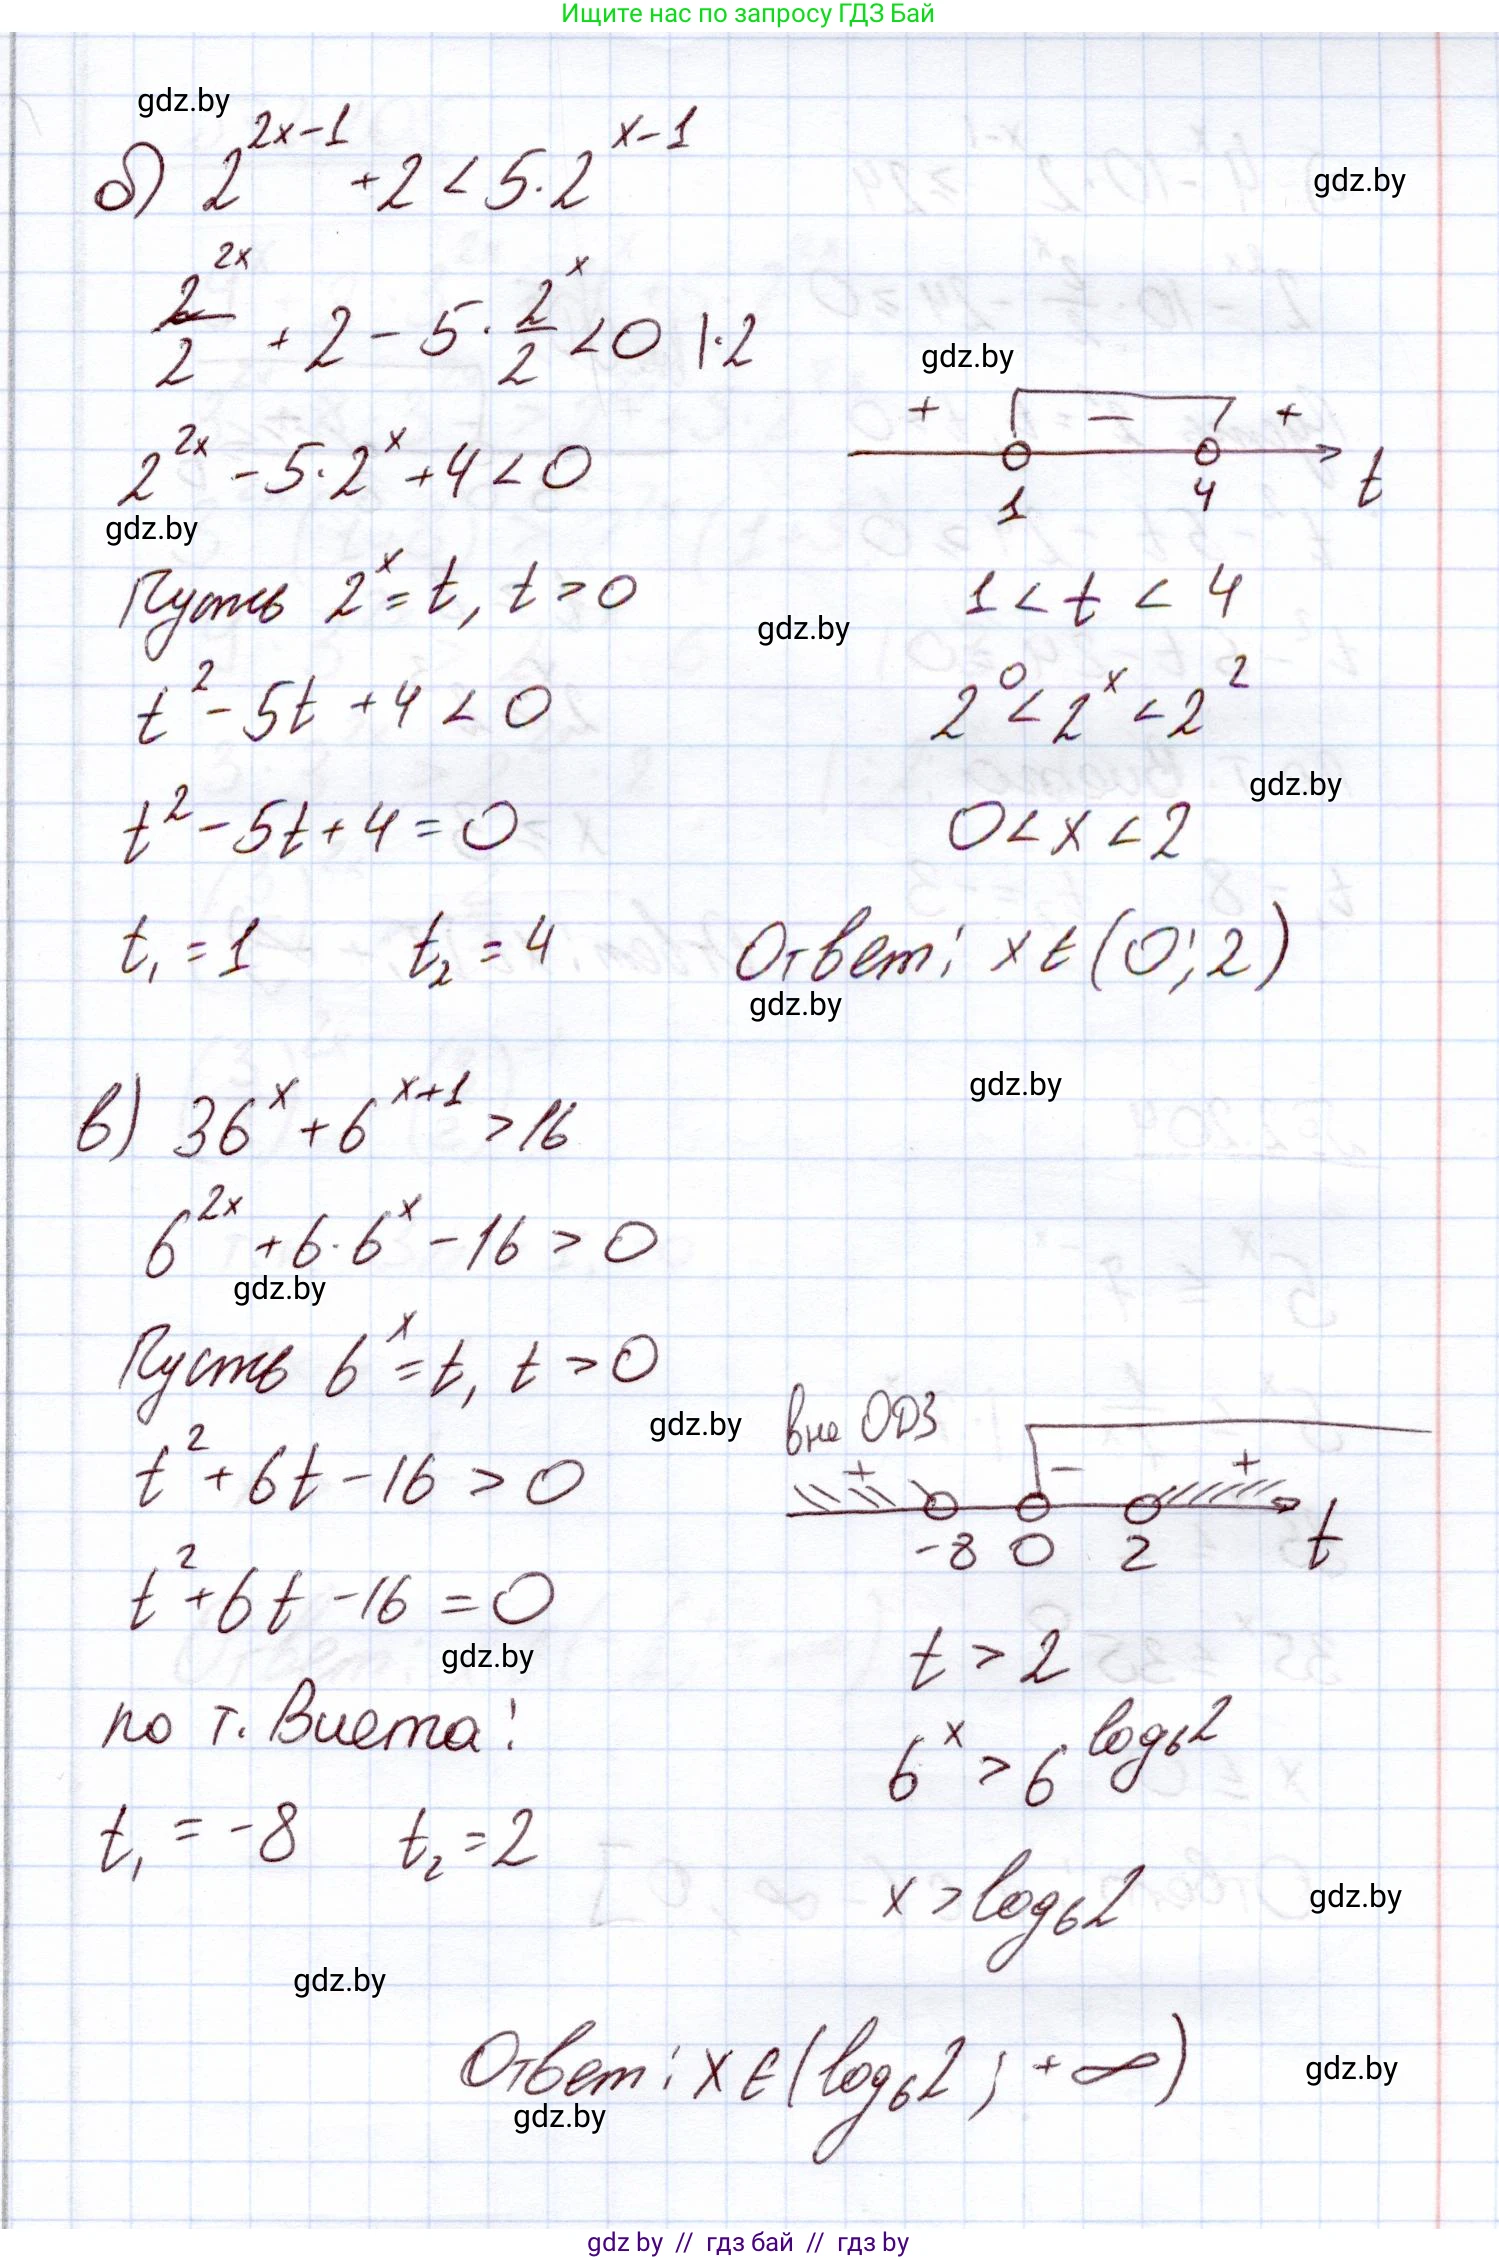 Ищите нас по запросу ГДЗ Бай
gdz.by
б) 2^{2x-1} + 2 < 5·2^{x-1}
gdz.by
2^{2x}/2 + 2 - 5·2^x/2 < 0 |·2
gdz.by
2^{2x} - 5·2^x + 4 < 0
gdz.by
Пусть 2^x = t, t > 0
t² - 5t + 4 < 0
t² - 5t + 4 = 0
t₁ = 1 t₂ = 4
+ - +
1 4 t
1 < t < 4
gdz.by
2^0 < 2^x < 2^2
gdz.by
0 < x < 2
Ответ: x ∈ (0; 2)
gdz.by
gdz.by
в) 36^x + 6^{x+1} > 16
6^{2x} + 6·6^x - 16 > 0
gdz.by
Пусть 6^x = t, t > 0
gdz.by
t² + 6t - 16 > 0
t² + 6t - 16 = 0
gdz.by
по т. Виета:
t₁ = -8 t₂ = 2
вне ОДЗ
+ - +
-8 0 2 t
t > 2
6^x > 6^{log₆2}
x > log₆2
gdz.by
gdz.by
Ответ: x ∈ (log₆2; +∞)
gdz.by
gdz.by
gdz by // гдз бай // гдз by